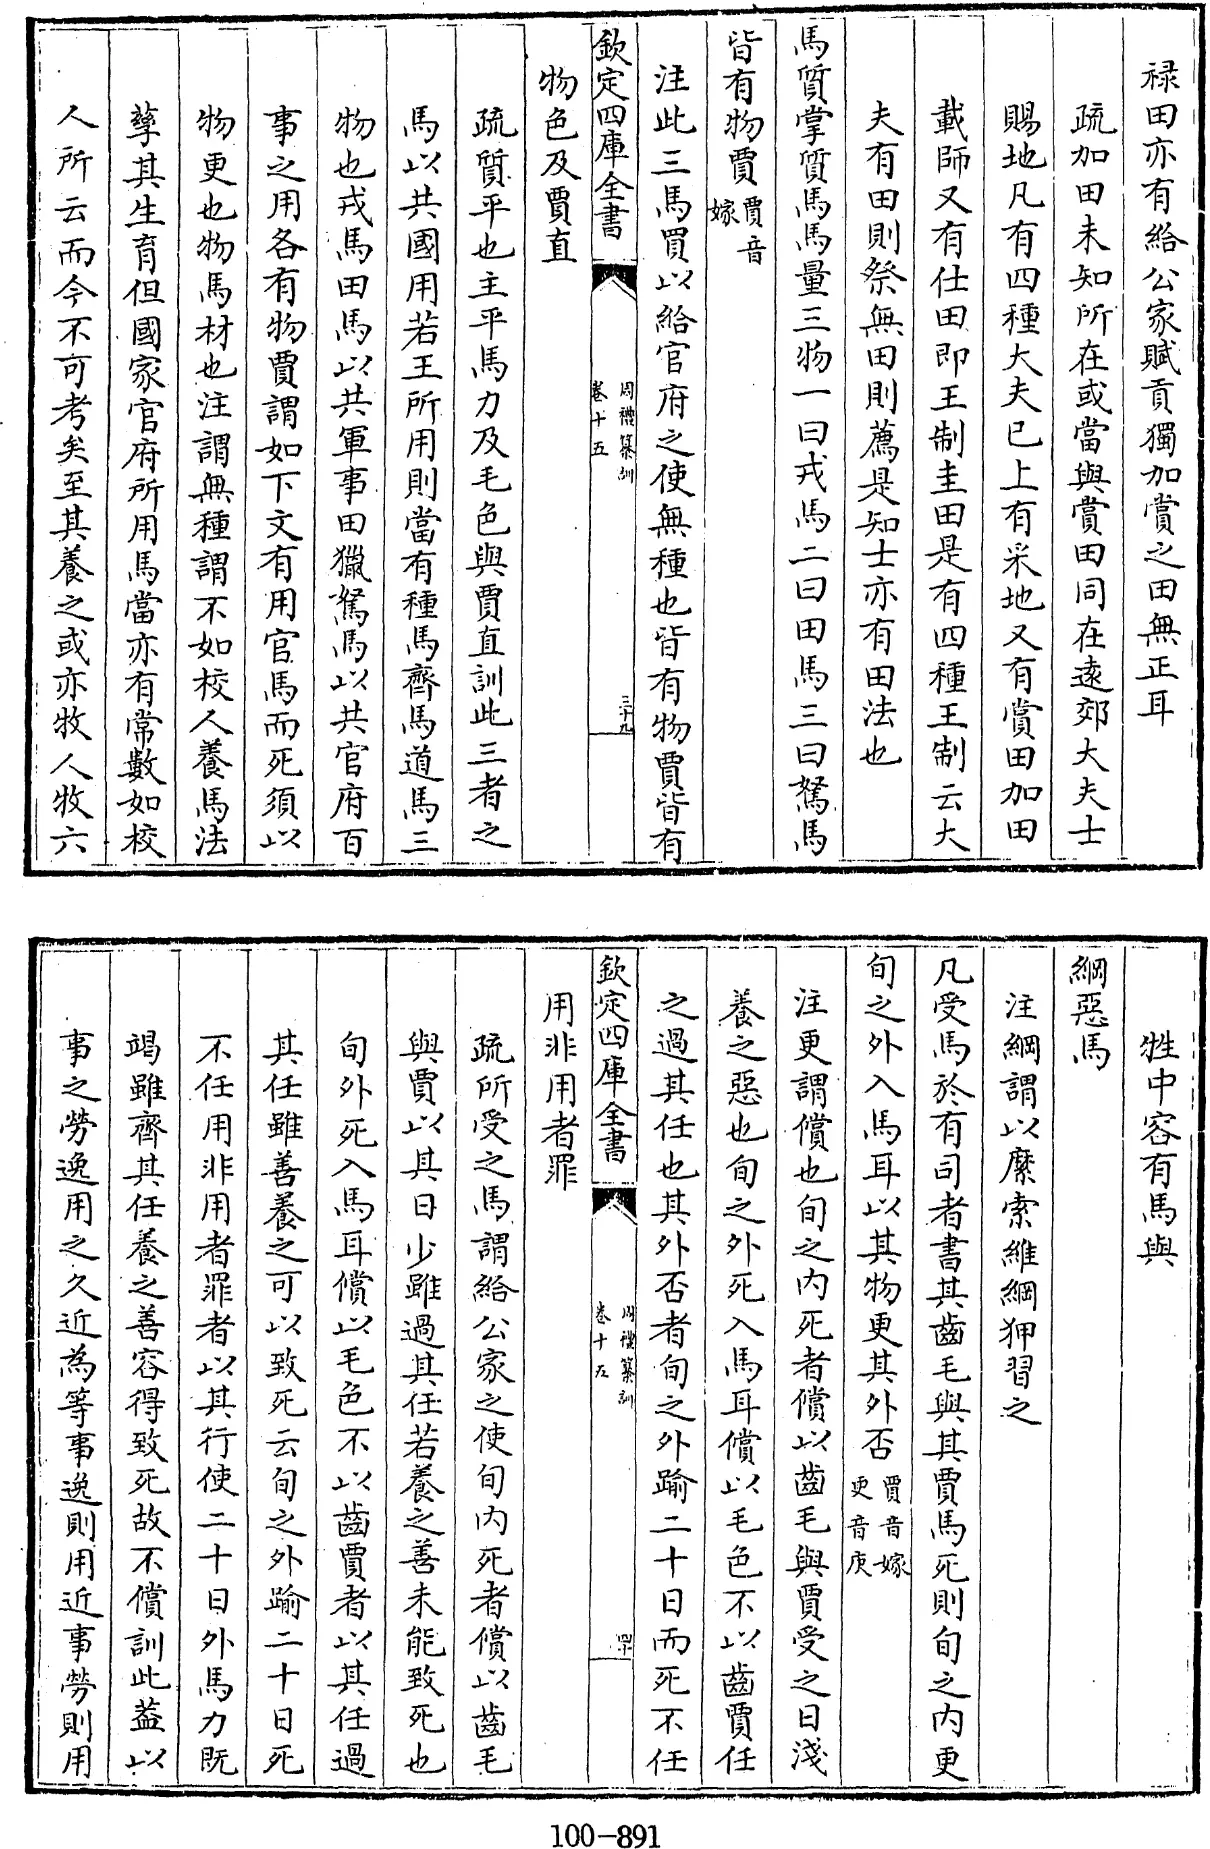 禄田亦有給公家賦貢獨加賞之田無正耳
疏加田未知所在或當與賞田同在逺郊大夫士
賜地凡有四種大夫已上有采地又有賞田加田
載師又有仕田即王制圭田是有四種王制云大
夫有田則祭無田則薦是知士亦有田法也
馬質掌質馬馬量三物一曰戎馬二曰田馬三曰駑馬
皆有物賈賈音嫁
注此三馬買以給官府之使無種也皆有物賈皆有
欽定四庫全書
周禮纂訓
卷十五
三十九
物色及賈直
疏質平也主平馬力及毛色與賈直訓此三者之
馬以共國用若王所用則當有種馬齊馬道馬三
物也戎馬田馬以共軍事田獵駑馬以共官府百
事之用各有物賈謂如下文有用官馬而死須以
物更也物馬材也注謂無種謂不如校人養馬法
孳其生育但國家官府所用馬當亦有常數如校
人所云而今不可考矣至其養之或亦牧人牧六
牲中容有馬與
綱惡馬
注綱謂以縻索維綱狎習之
凡受馬於有司者書其齒毛與其賈馬死則旬之内更
旬之外入馬耳以其物更其外否賈音嫁更音庚
注更謂償也旬之内死者償以齒毛與賈受之日淺
養之惡也旬之外死入馬耳償以毛色不以齒賈任
之過其任也其外否者旬之外踰二十日而死不任
欽定四庫全書
周禮纂訓
卷十五
四十
用非用者罪
疏所受之馬謂給公家之使旬内死者償以齒毛
與賈以其日少雖過其任若養之善未能致死也
旬外死入馬耳償以毛色不以齒賈者以其任過
其任雖善養之可以致死云旬之外踰二十日死
不任用非用者罪者以其行使二十日外馬力既
竭雖齊其任養之善容得致死故不償訓此蓋以
事之勞逸用之久近為等事逸則用近事勞則用
100-891